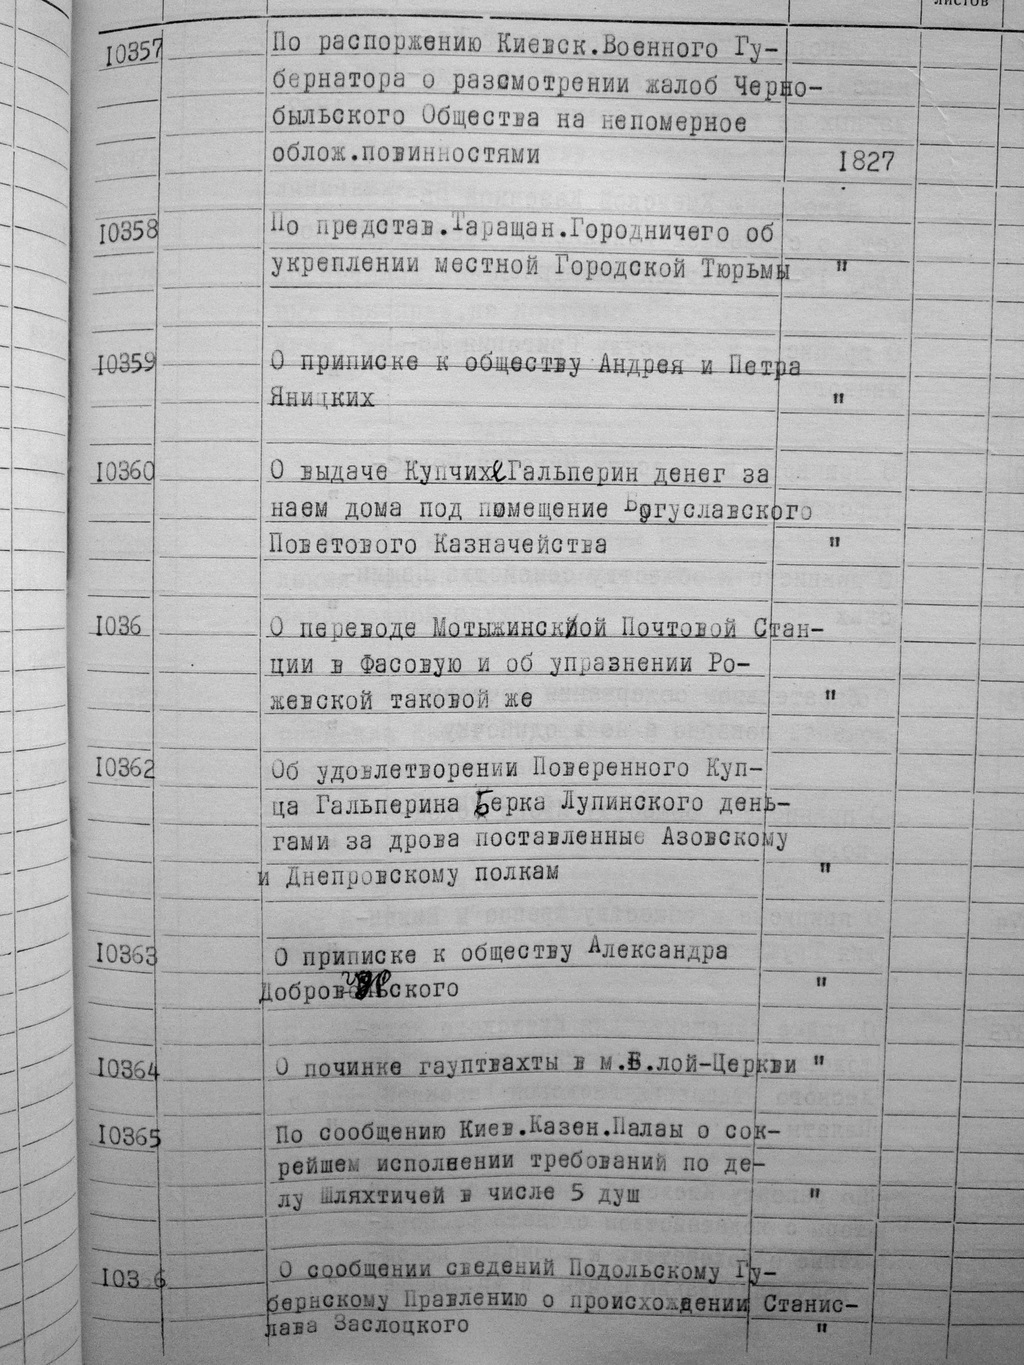 листов
10357 По распоржению Киевск.Военного Гу-
бернатора о разсмотрении жалоб Черно-
быльского Общества на непомерное
облож.повинностями 1827
10358 По представ.Таращан.Городничего об
укреплении местной Городской Тюрьмы "
10359 О приписке к обществу Андрея и Петра
Яницких "
10360 О выдаче Купчихе Гальперин денег за
наем дома под помещение Богуславского
Поветового Казначейства "
1036 О переводе Мотыжинской Почтовой Стан-
ции в Фасовую и об упразнении Ро-
жевской таковой же "
10362 Об удовлетворении Поверенного Куп-
ца Гальперина Берка Лупинского день-
гами за дрова поставленные Азовскому
и Днепровскому полкам "
10363 О приписке к обществу Александра
"
10364 О починке гауптвахты в м.Б.лой-Церкви "
10365 По сообщению Киев.Казен.Палаы о сок-
рейшем исполнении требований по де-
лу Шляхтичей в числе 5 душ "
103 6 О сообщении сведений Подольскому Гу-
бернскому Правлению о происхождении Станис-
лава Заслоцкого "